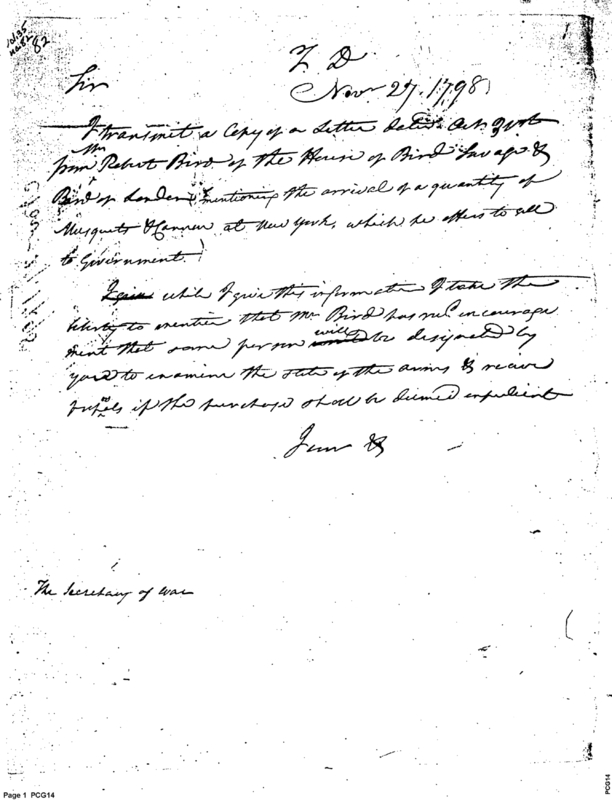 82
T. D.
Nov 27. 1798
Sir
I transmit a Copy of a Letter dated Oct.
from Mr Robert Bird of the House of Bird Savage &
Bird of London & mentioning the arrival of a quantity of
Musquets & Cannon at New York, which he offers to sell
to Government.
while I give this information I take the
liberty to mention that Mr Bird has recd encourage
ment that some person will be designated by
you to examine the state of the arms & receive
if the purchase shall be deemed expedient
I am &
The Secretary of War
Page 1 PCG14
PCG14